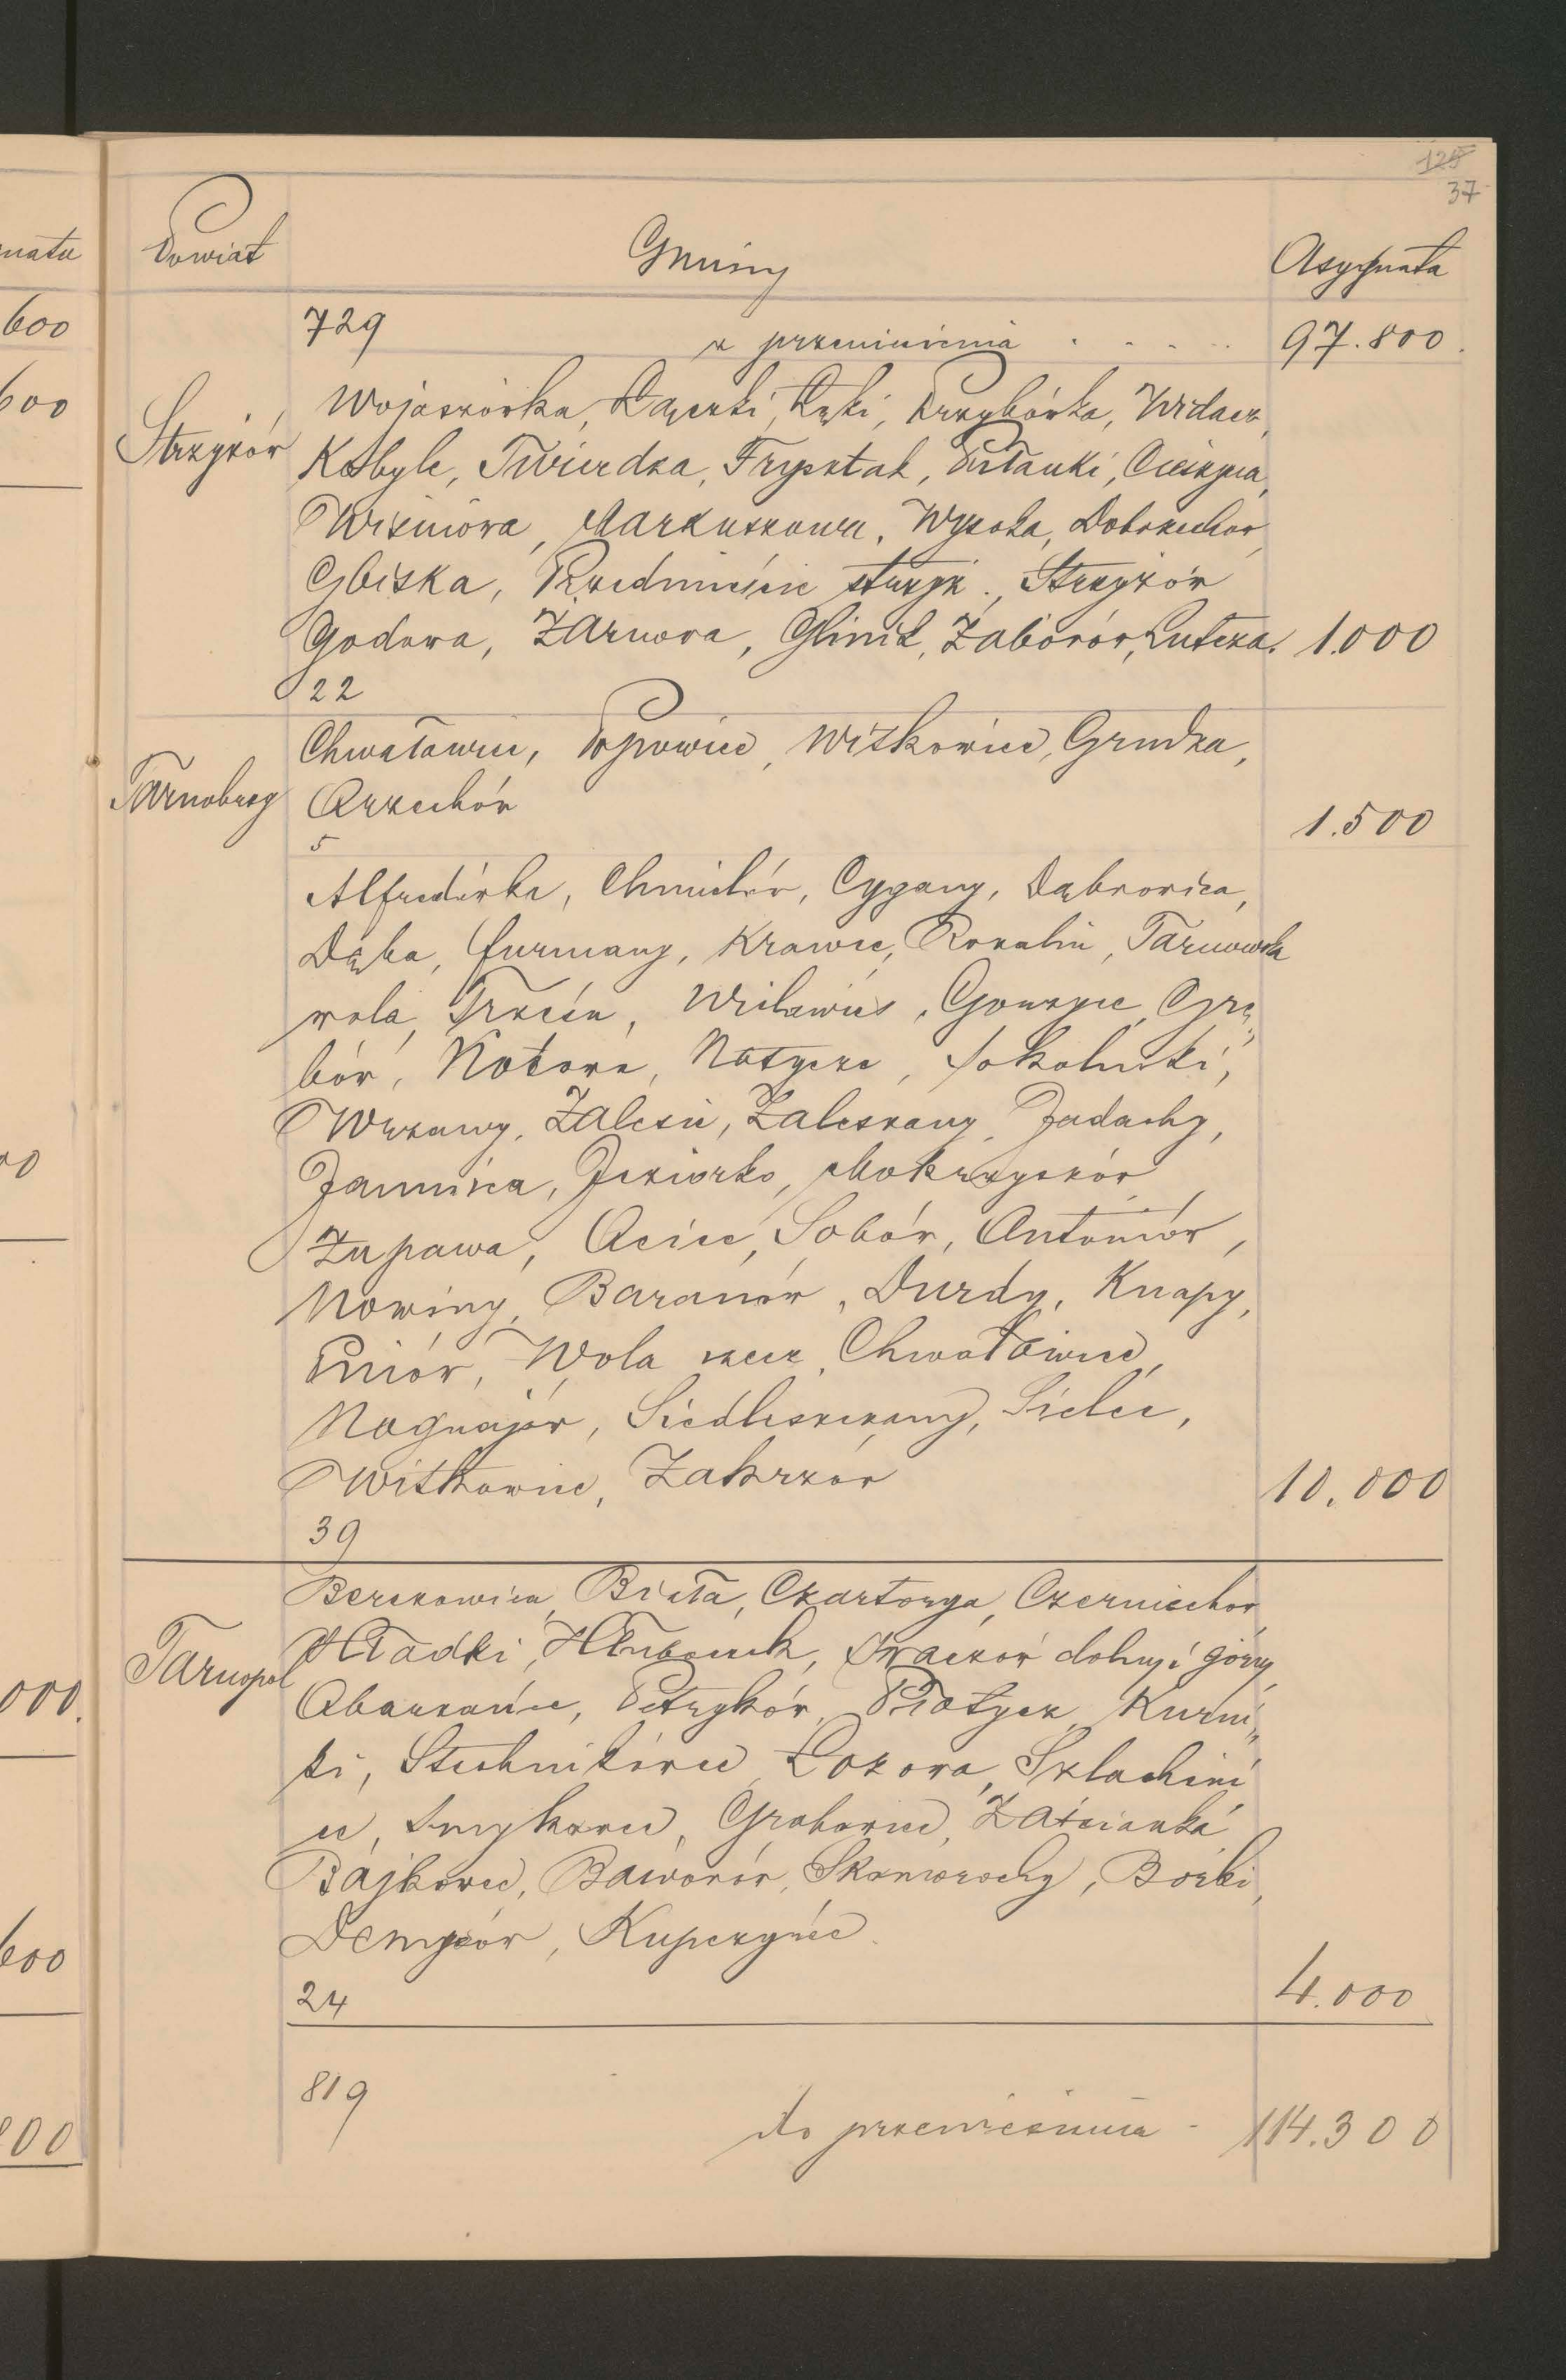 125
37
Powiat Gminy Asygnata
729 z przeniesienia . . . . . 97.800.
Wojaszówka, Łączki, Łęki, Przybówka, Widacz,
Strzyżów Kobyle, Twierdza, Frysztak, Pstanki, Cieszyna,
Wiśniowa, Markuszowa, Wysoka, Dobrzechów,
Gbiska, Przedmieście strzyż., Strzyżów
Godowa, Żarnowa, Glinik, Zaborów, Lutcza. 1.000
22
Chwałowice, Popowice, Witkowice, Grudza,
Tarnobrzeg Orzechów
1.500
5
Alfredówka, Chmielów, Cygany, Dąbrowica,
Dęba, Furmany, Krawce, Rozalin, Tarnowska
wola, Trześń, Wielowieś, Gorzyce, Grę„
bów, Kotowa, Motycze, Sokolniki,
Wrzawy, Zalesie, Zaleszany, Jadachy,
Jamnica, Jeziorko, Mokrzyszów,
Żupawa, Ocice, Sobów, Antoniów,
Nowiny, Baranów, Durdy, Knapy,
Pniów, Wola rzecz, Chwałowice,
Nagnajów, Siedleszczany, Sielec,
Witkowice, Zakrzów 10.000
39
Berezowica, Biała, Czartorya, Czerniechów
Tarnopol Hładki, Hłuboczek, Iwaczów dolny i górny
Obarzańce, Petryków, Płotycz, Kurni„
ki, Stechnikowce, Łozowa, Szlachciń
ce, Smykowce, Grabowce, Zaścianka
Bajkowce, Baworów, Skomorochy, Borki,
Denysów, Kupczyńce.
24 4.000
819
do przeniesienia - 114.300
natu
600
600
00
000.
600
800